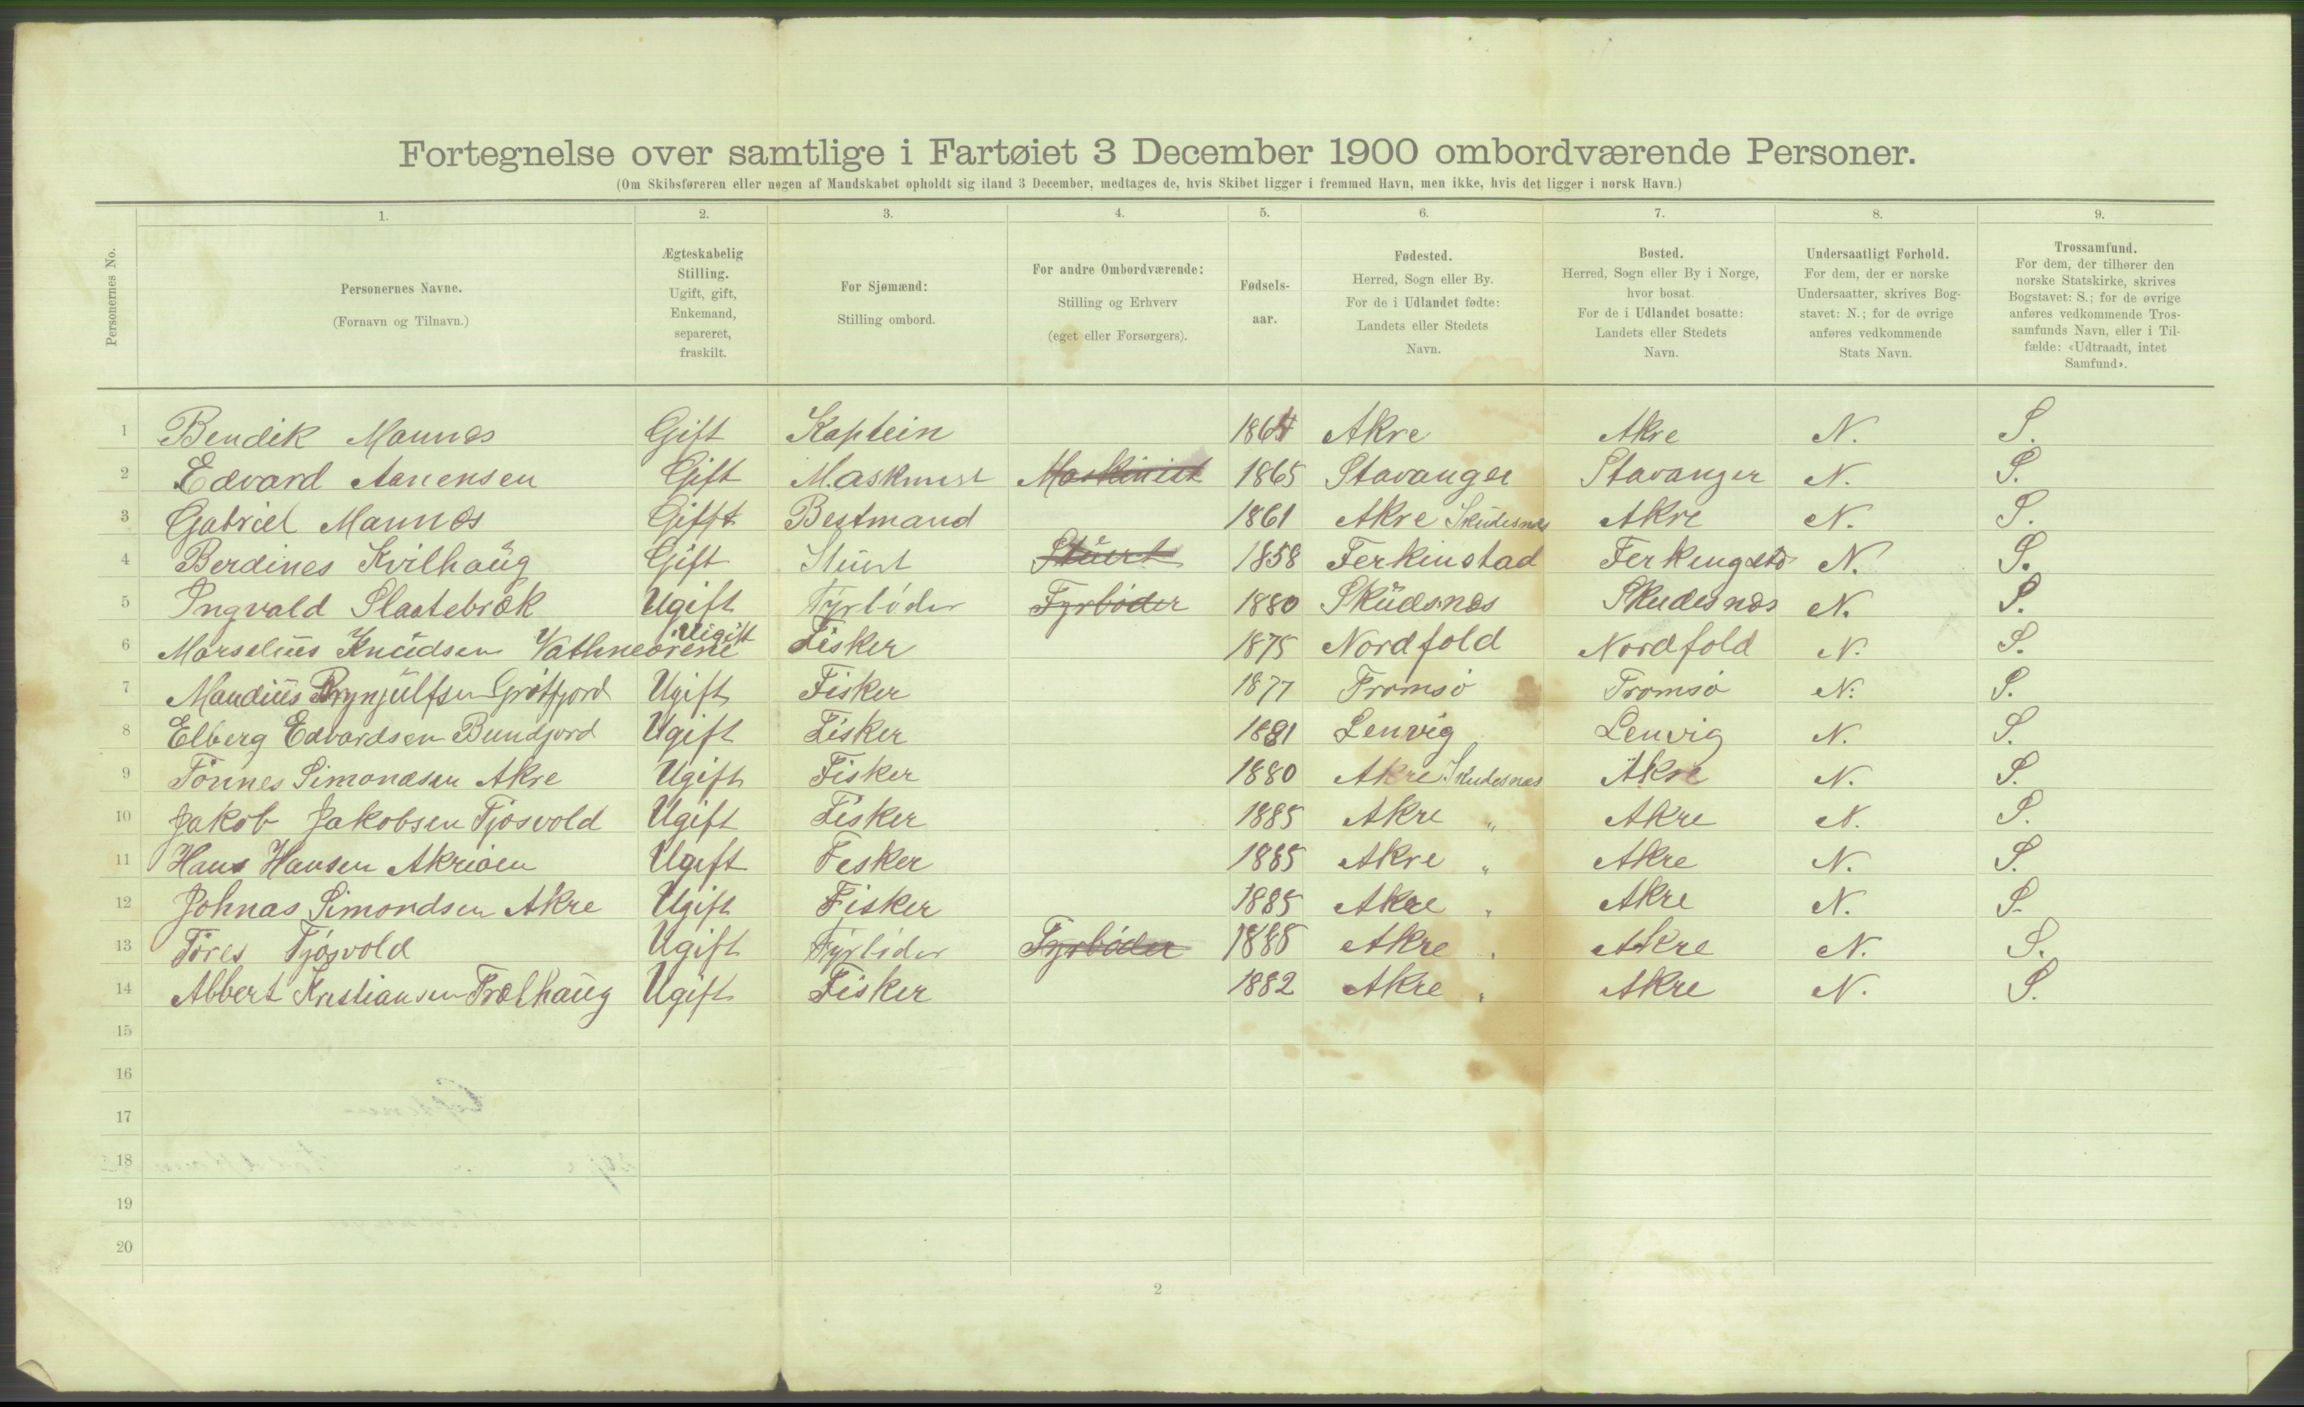 Fortegnelse over samtlige i Fartøiet 3 December 1900 ombordværende Personer.
(Om Skibsføreren eller nogen af Mandskabet opholdt sig iland 3 December, medtages de, hvis Skibet ligger i fremmed Havn, men ikke, hvis det ligger i norsk Havn.)
Personernes No.
1. 2. 3. 4. 5. 6. 7. 8. 9.
Personernes Navne.
(Fornavn og Tilnavn.)
Ægteskabelig
Stilling.
Ugift, gift,
Enkemand,
separeret,
fraskilt.
For Sjømænd:
Stilling ombord.
For andre Ombordværende:
Stilling og Erhverv
(eget eller Forsørgers).
Fødsels-
aar.
Fødested.
Herred, Sogn eller By.
For de i Udlandet fødte:
Landets eller Stedets
Navn.
Bosted.
Herred, Sogn eller By i Norge,
hvor bosat.
For de i Udlandet bosatte:
Landets eller Stedets
Navn.
Undersaatligt Forhold.
For dem, der er norske
Undersaatter, skrives Bog-
stavet: N.; for de øvrige
anføres vedkommende
Stats Navn.
Trossamfund.
For dem, der tilhører den
norske Statskirke, skrives
Bogstavet: S.; for de øvrige
anføres vedkommende Tros-
samfunds Navn, eller i Til-
fælde: «Udtraadt, intet
Samfund».
1 Bendik Mannes Gift Kaptein 1864 Akre Akre N. S.
2 Edvard Aanensen Gift Maskinist Maskinist 1865 Stavanger Stavanger N. S.
3 Gabriel Mannes Gifft Bestmand 1861 Akre Skudesnes Akre N. S.
4 Berdines Kvilhaug Gift Stuert Stuert 1858 Ferkinstad Ferkingstd N. S.
5 Ingvald Slaatebræk Ugift Fyrbøder Fyrbøder 1880 Skudsnes Skudesnes N. S.
6 Marselius Knudsen Vathneørene Ugift Fisker 1875 Nordfold Nordfold N. S.
7 Maudius Brynjulfsen Grøtfjord Ugift Fisker 1877 Tromsø Tromsø N. S.
8 Elberg Edvardsen Bundjord Ugift Fisker 1881 Lenvig Lenvig N. S.
9 Tønnes Simondsen Akre Ugift Fisker 1880 Akre Skudesnes Akre N. S.
10 Jakob Jakobsen Tjøsvold Ugift Fisker 1885 Akre " Akre N. S.
11 Hans Hansen Akriøen Ugift Fisker 1885 Akre " Akre N. S.
12 Johnas Simondsen Akre Ugift Fisker 1885 Akre " Akre N. S.
13 Tøres Tjøsvold Ugift Fyrbøder Fyrbøder 1885 Akre " Akre N. S.
14 Abbert Kristiansen Trælhaug Ugift Fisker 1882 Akre " Akre N. S.
15
16
17
18
19
20
2